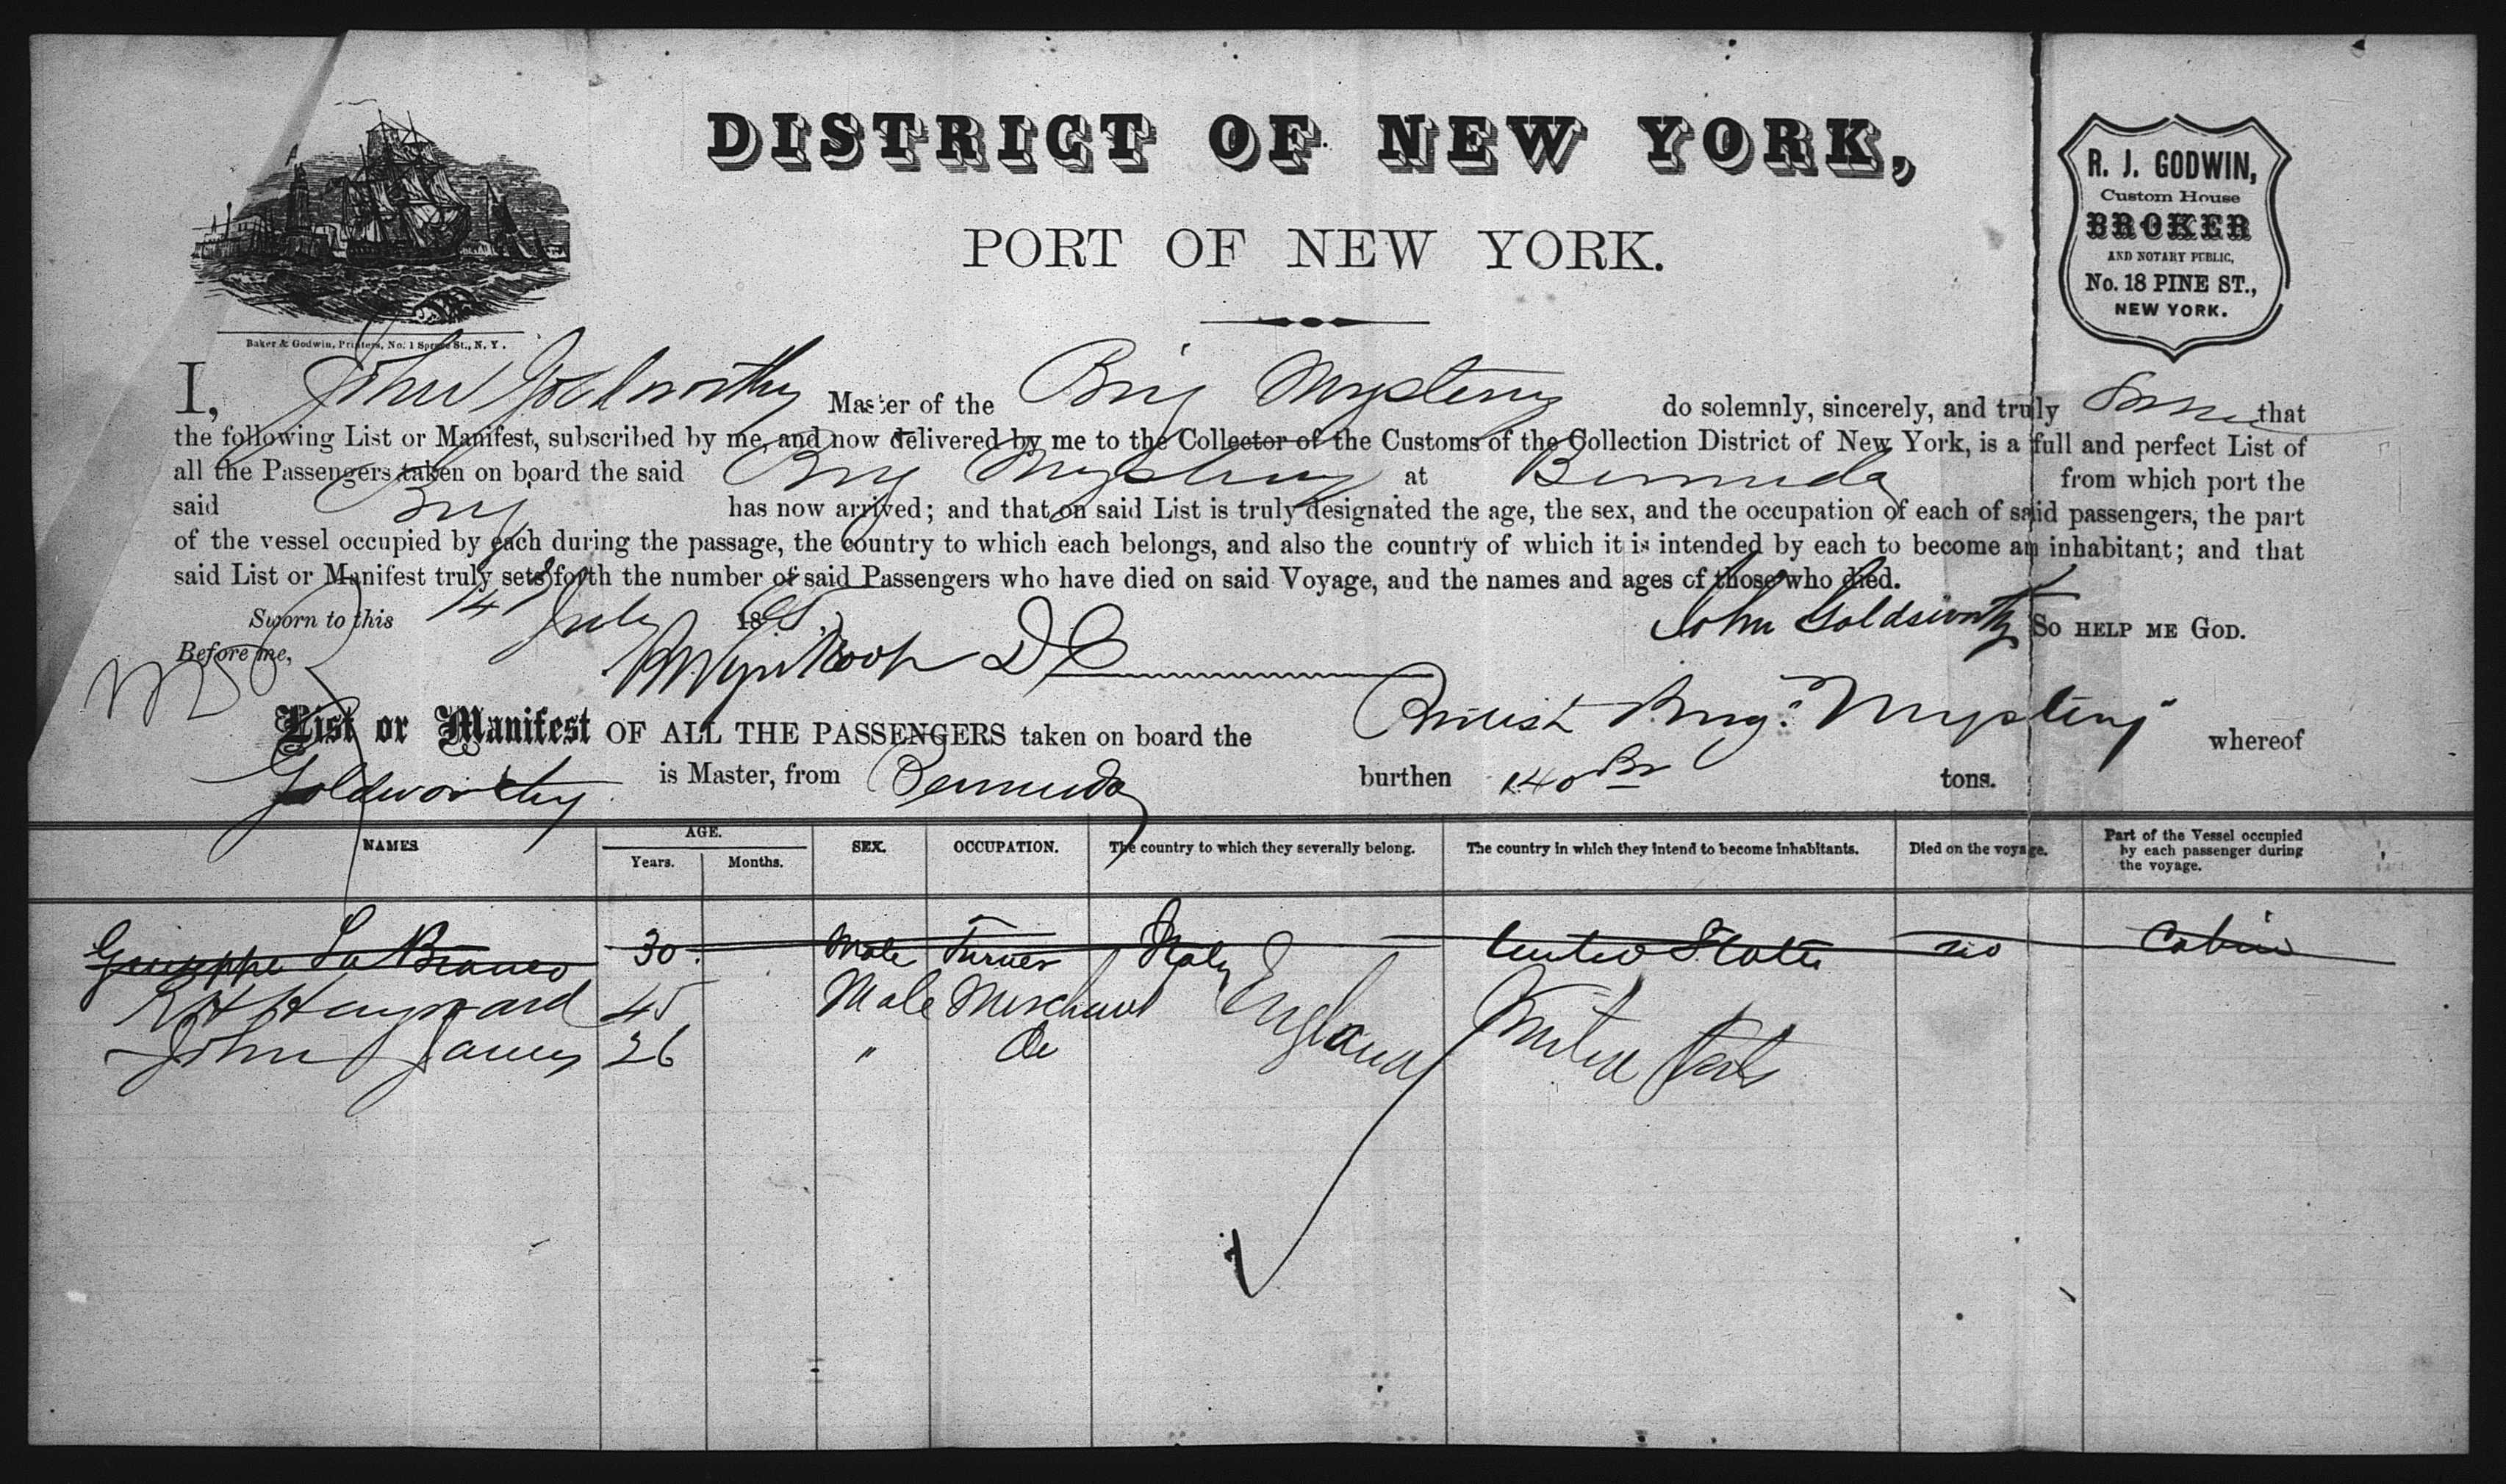 DISTRICT OF NEW YORK,
PORT OF NEW YORK.
R. J. GODWIN,
Custom House
BROKER
AND NOTARY PUBLIC,
No. 18 PINE ST.,
NEW YORK.
Baker & Godwin, Printers, No. 1 Spruce St., N. Y.
I, John Goldworthy Master of the Brig Mystery do solemnly, sincerely, and truly that
the following List or Manifest, subscribed by me, and now delivered by me to the Collector of the Customs of the Collection District of New York, is a full and perfect List of
all the Passengers taken on board the said Brig Mystery at Bermuda from which port the
said Brig has now arrived; and that on said List is truly designated the age, the sex, and the occupation of each of said passengers, the part
of the vessel occupied by each during the passage, the country to which each belongs, and also the country of which it is intended by each to become an inhabitant; and that
said List or Manifest truly sets forth the number of said Passengers who have died on said Voyage, and the names and ages of those who died.
Sworn to this 14th July 1865, John Goldsworthy SO HELP ME GOD.
Before me, Wynkoop D C
List or Manifest OF ALL THE PASSENGERS taken on board the British Brig "Mystery" whereof
Goldworthy is Master, from Bermuda burthen 140 tons.
NAMES AGE. Years. Months. SEX. OCCUPATION. The country to which they severally belong. The country in which they intend to become inhabitants. Died on the voyage. Part of the Vessel occupied by each passenger during the voyage.
Giuseppe Lo Bianco 30. Male Turner Italy United States no Cabin
R H Hayward 45 Male Merchant England United Stats
John James 26 " Do